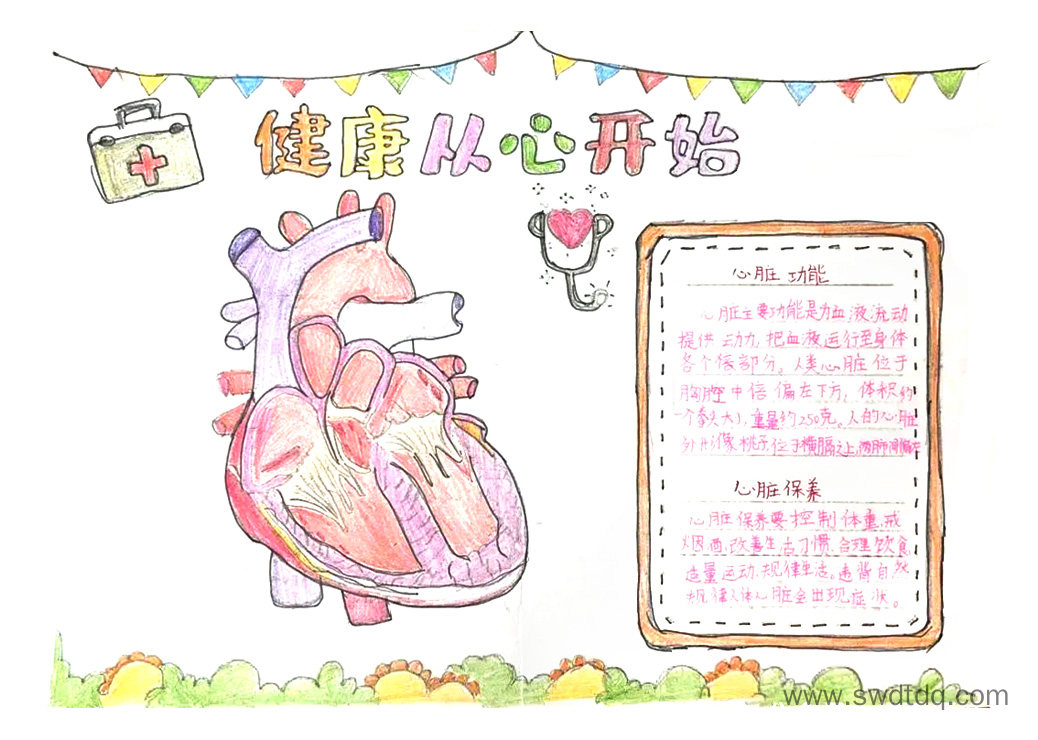 健康从心开始
心脏功能
心脏主要功能是为血液流动
提供动力,把血液运行至身体
各个低部分。人类心脏位于
胸腔中倍偏左下方,体积约
一个拳头大小,重量约250克。人的心脏
外形像桃子,位于横膈之上,两肺间偏左
心脏保养
心脏保养要控制体重,戒
烟酒,改善生活习惯、合理饮食,
适量运动、规律生活。违背自然
规律人体心脏会出现症状。
www.swdtdq.com